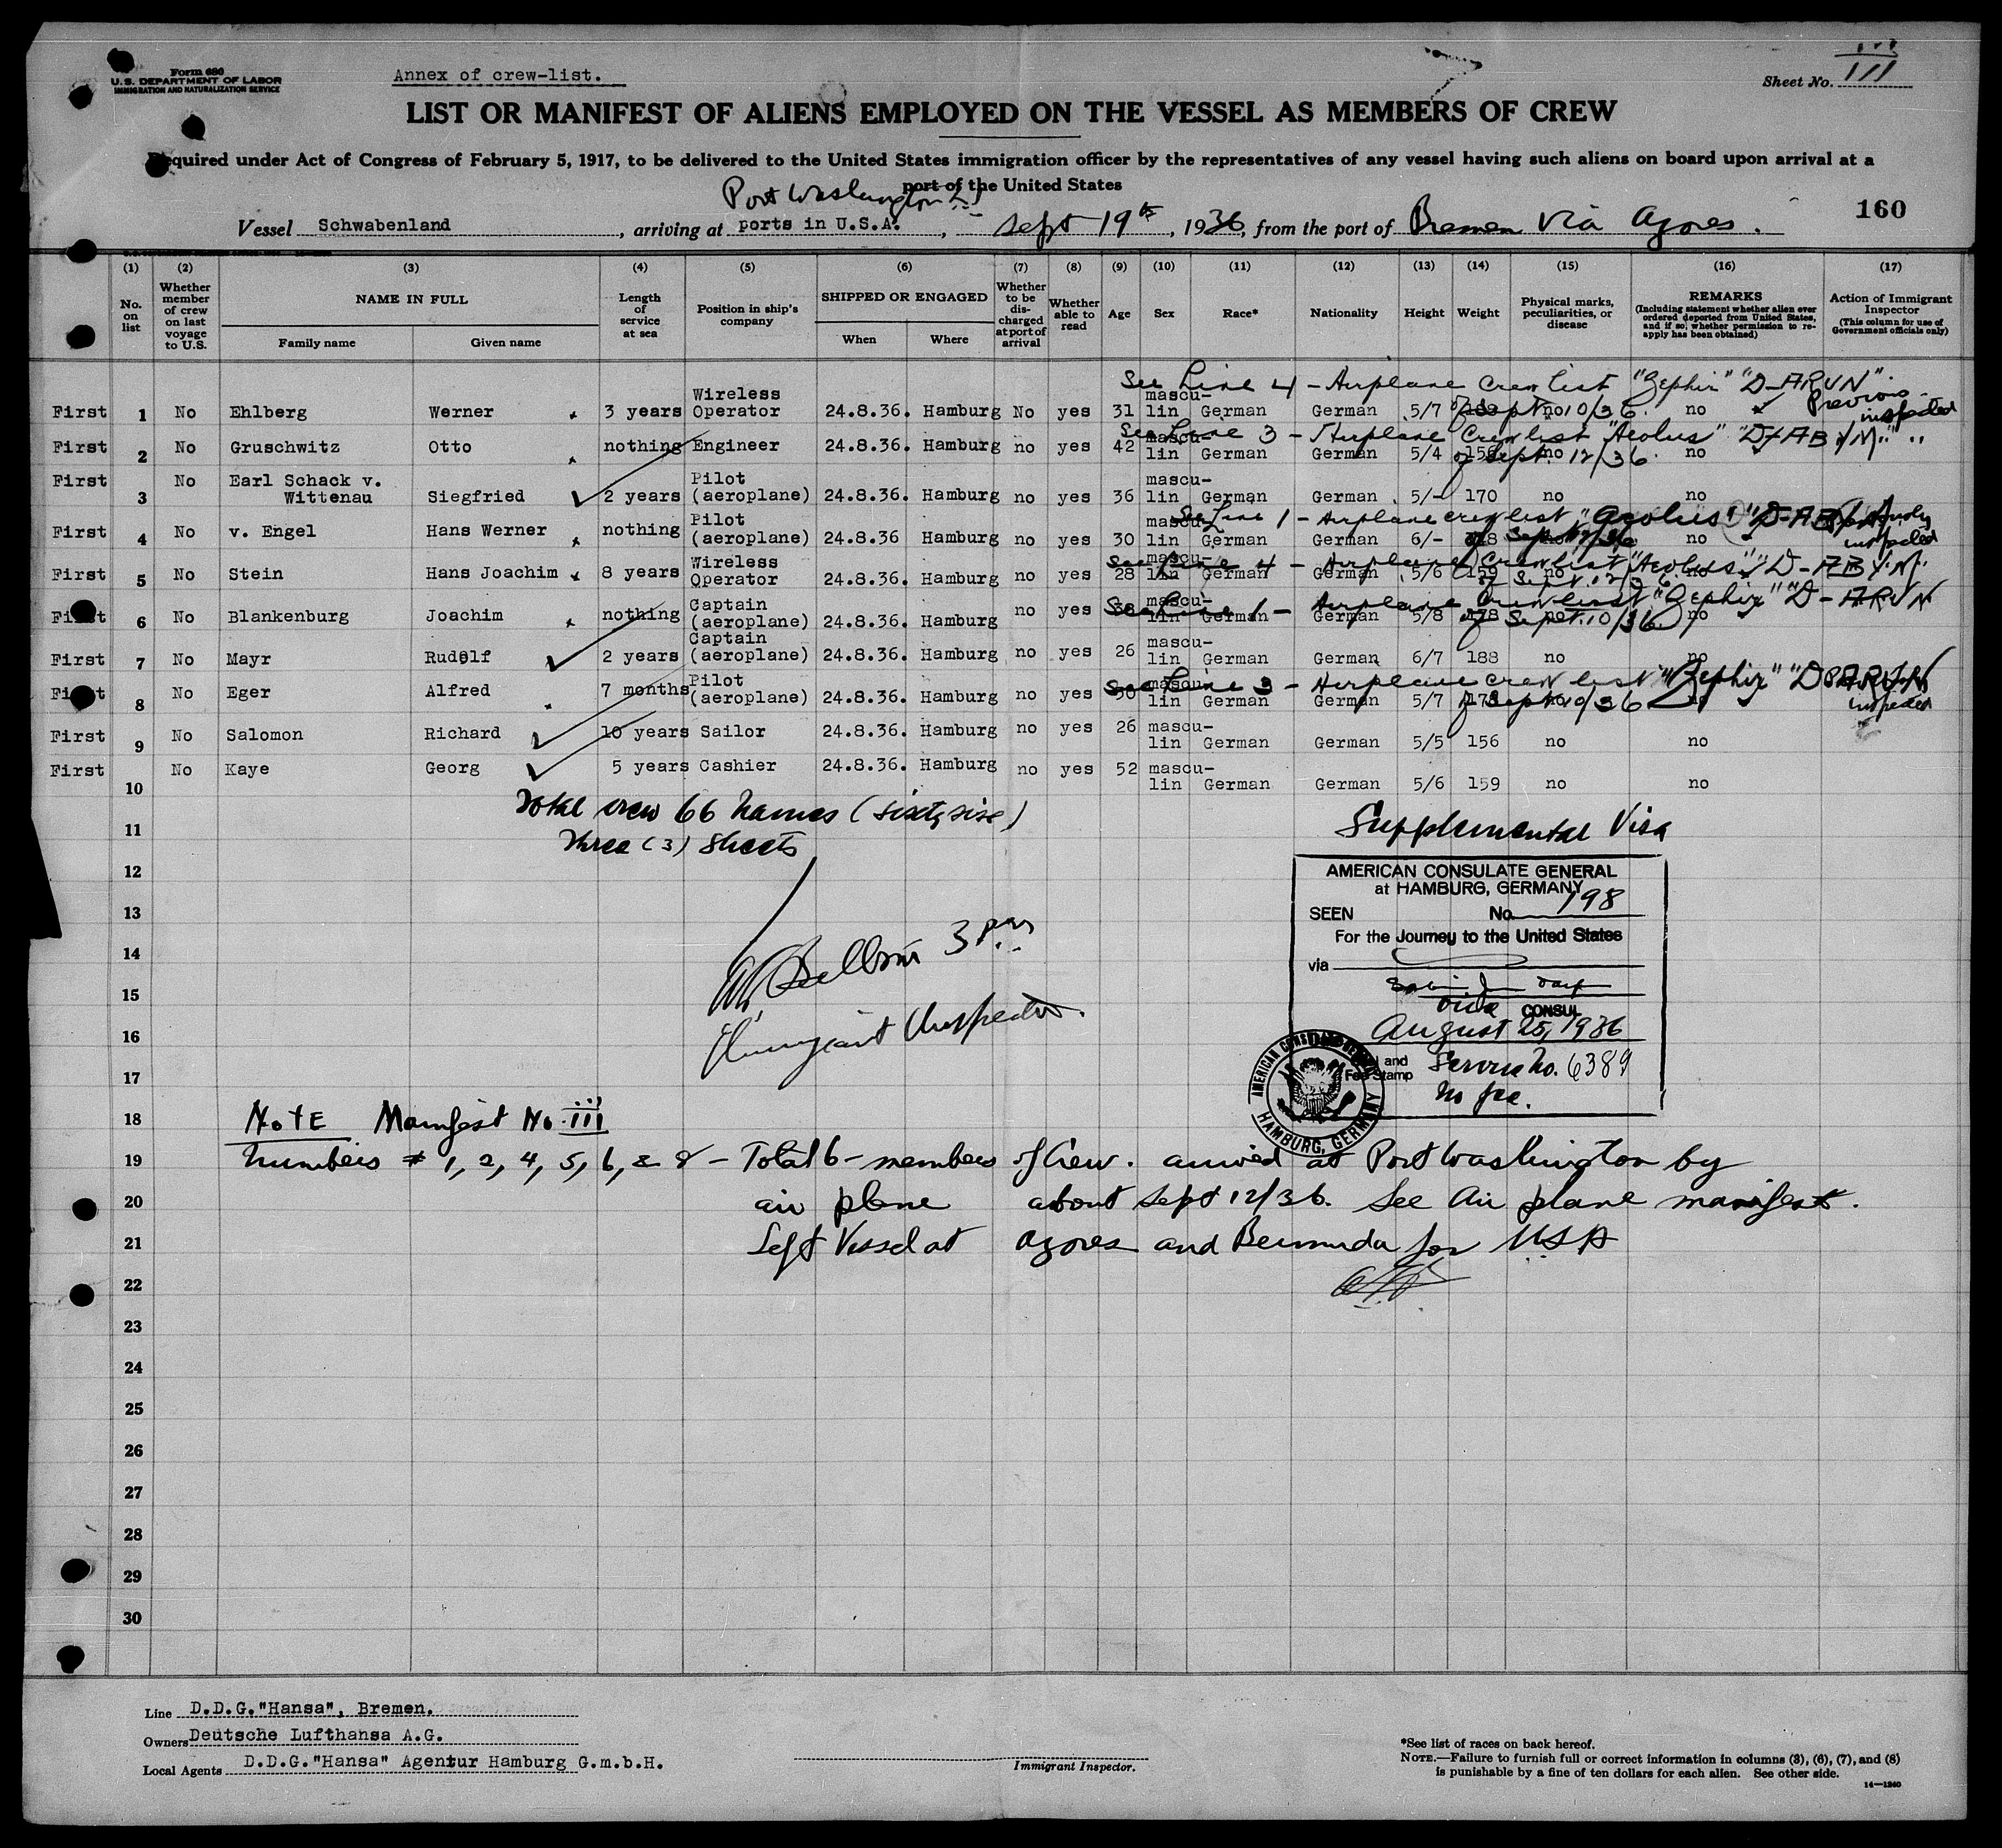 Form 680
U.S. DEPARTMENT OF LABOR
IMMIGRATION AND NATURALIZATION SERVICE
Annex of crew-list.
Sheet No. III
LIST OR MANIFEST OF ALIENS EMPLOYED ON THE VESSEL AS MEMBERS OF CREW
Required under Act of Congress of February 5, 1917, to be delivered to the United States immigration officer by the representatives of any vessel having such aliens on board upon arrival at a
port of the United States
Port Washington
160
Vessel Schwabenland, arriving at ports in U.S.A., Sept 19th, 1936, from the port of Bremen via Azores.
(1) (2) (3) (4) (5) (6) (7) (8) (9) (10) (11) (12) (13) (14) (15) (16) (17)
No. on list
Whether member of crew on last voyage to U.S.
NAME IN FULL
Family name
Given name
Length of service at sea
Position in ship's company
SHIPPED OR ENGAGED
When
Where
Whether to be discharged at port of arrival
Whether able to read
Age
Sex
Race*
Nationality
Height
Weight
Physical marks, peculiarities, or disease
REMARKS
(Including statement whether alien ever ordered deported from United States, and if so, whether permission to reapply has been obtained)
Action of Immigrant Inspector
(This column for use of Government officials only)
See Line 4 - Airplane Crew list "Zephir" "D-ARUN".
of Sept 10/36. Previous inspected
First 1 No Ehlberg Werner 3 years Wireless Operator 24.8.36. Hamburg No yes 31 mascu-lin German German 5/7 no no
See Line 3 - Airplane Crew list "Aeolus"
of Sept. 12/36.
First 2 No Gruschwitz Otto nothing Engineer 24.8.36. Hamburg no yes 42 mascu-lin German German 5/4 no no
First 3 No Earl Schack v. Wittenau Siegfried 2 years Pilot (aeroplane) 24.8.36. Hamburg no yes 36 mascu-lin German German 5/- 170 no no
See Line 1 - Airplane crew list "Aeolus"
inspected
First 4 No v. Engel Hans Werner nothing Pilot (aeroplane) 24.8.36 Hamburg no yes 30 mascu-lin German German 6/- no
See Line 4 - Airplane Crew list "Aeolus"
of Sept. 12/36.
First 5 No Stein Hans Joachim 8 years Wireless Operator 24.8.36. Hamburg no yes 28 mascu-lin German German 5/6 159 no no
See Line 1 - Airplane Crew list "Zephir" "D-ARUN
of Sept. 10/36
First 6 No Blankenburg Joachim nothing Captain (aeroplane) 24.8.36. Hamburg no yes mascu-lin German German 5/8 178 no no
First 7 No Mayr Rudolf 2 years Captain (aeroplane) 24.8.36. Hamburg no yes 26 mascu-lin German German 6/7 188 no no
See Line 3 - Airplane crew list "Zephir"
of Sept 10/36 inspected
First 8 No Eger Alfred 7 months Pilot (aeroplane) 24.8.36. Hamburg no yes 30 mascu-lin German German 5/7 no
First 9 No Salomon Richard 10 years Sailor 24.8.36. Hamburg no yes 26 mascu-lin German German 5/5 156 no no
First 10 No Kaye Georg 5 years Cashier 24.8.36. Hamburg no yes 52 mascu-lin German German 5/6 159 no no
Total crew 66 names (sixty six)
Three (3) Sheets
11
12
13
14
15
16
17
18
19
20
21
22
23
24
25
26
27
28
29
30
Supplemental Visa
AMERICAN CONSULATE GENERAL
at HAMBURG, GERMANY
SEEN No. 198
For the Journey to the United States
via
Vice CONSUL
August 25, 1936
Seal and Fee Stamp
Service No. 6389
No fee.
AMERICAN CONSULATE GENERAL HAMBURG, GERMANY
3 pm
Immigrant Inspector.
NOTE Manifest No. III
Numbers # 1, 2, 4, 5, 6, & 8 - Total 6 - members of Crew. arrived at Port Washington by
air plane about Sept 12/36. See Air plane manifest.
Left Vessel at Azores and Bermuda for USA
Line D.D.G."Hansa", Bremen.
Owners Deutsche Lufthansa A.G.
Local Agents D.D.G."Hansa" Agentur Hamburg G.m.b.H.
Immigrant Inspector.
*See list of races on back hereof.
NOTE.—Failure to furnish full or correct information in columns (3), (6), (7), and (8)
is punishable by a fine of ten dollars for each alien. See other side.
14—1240